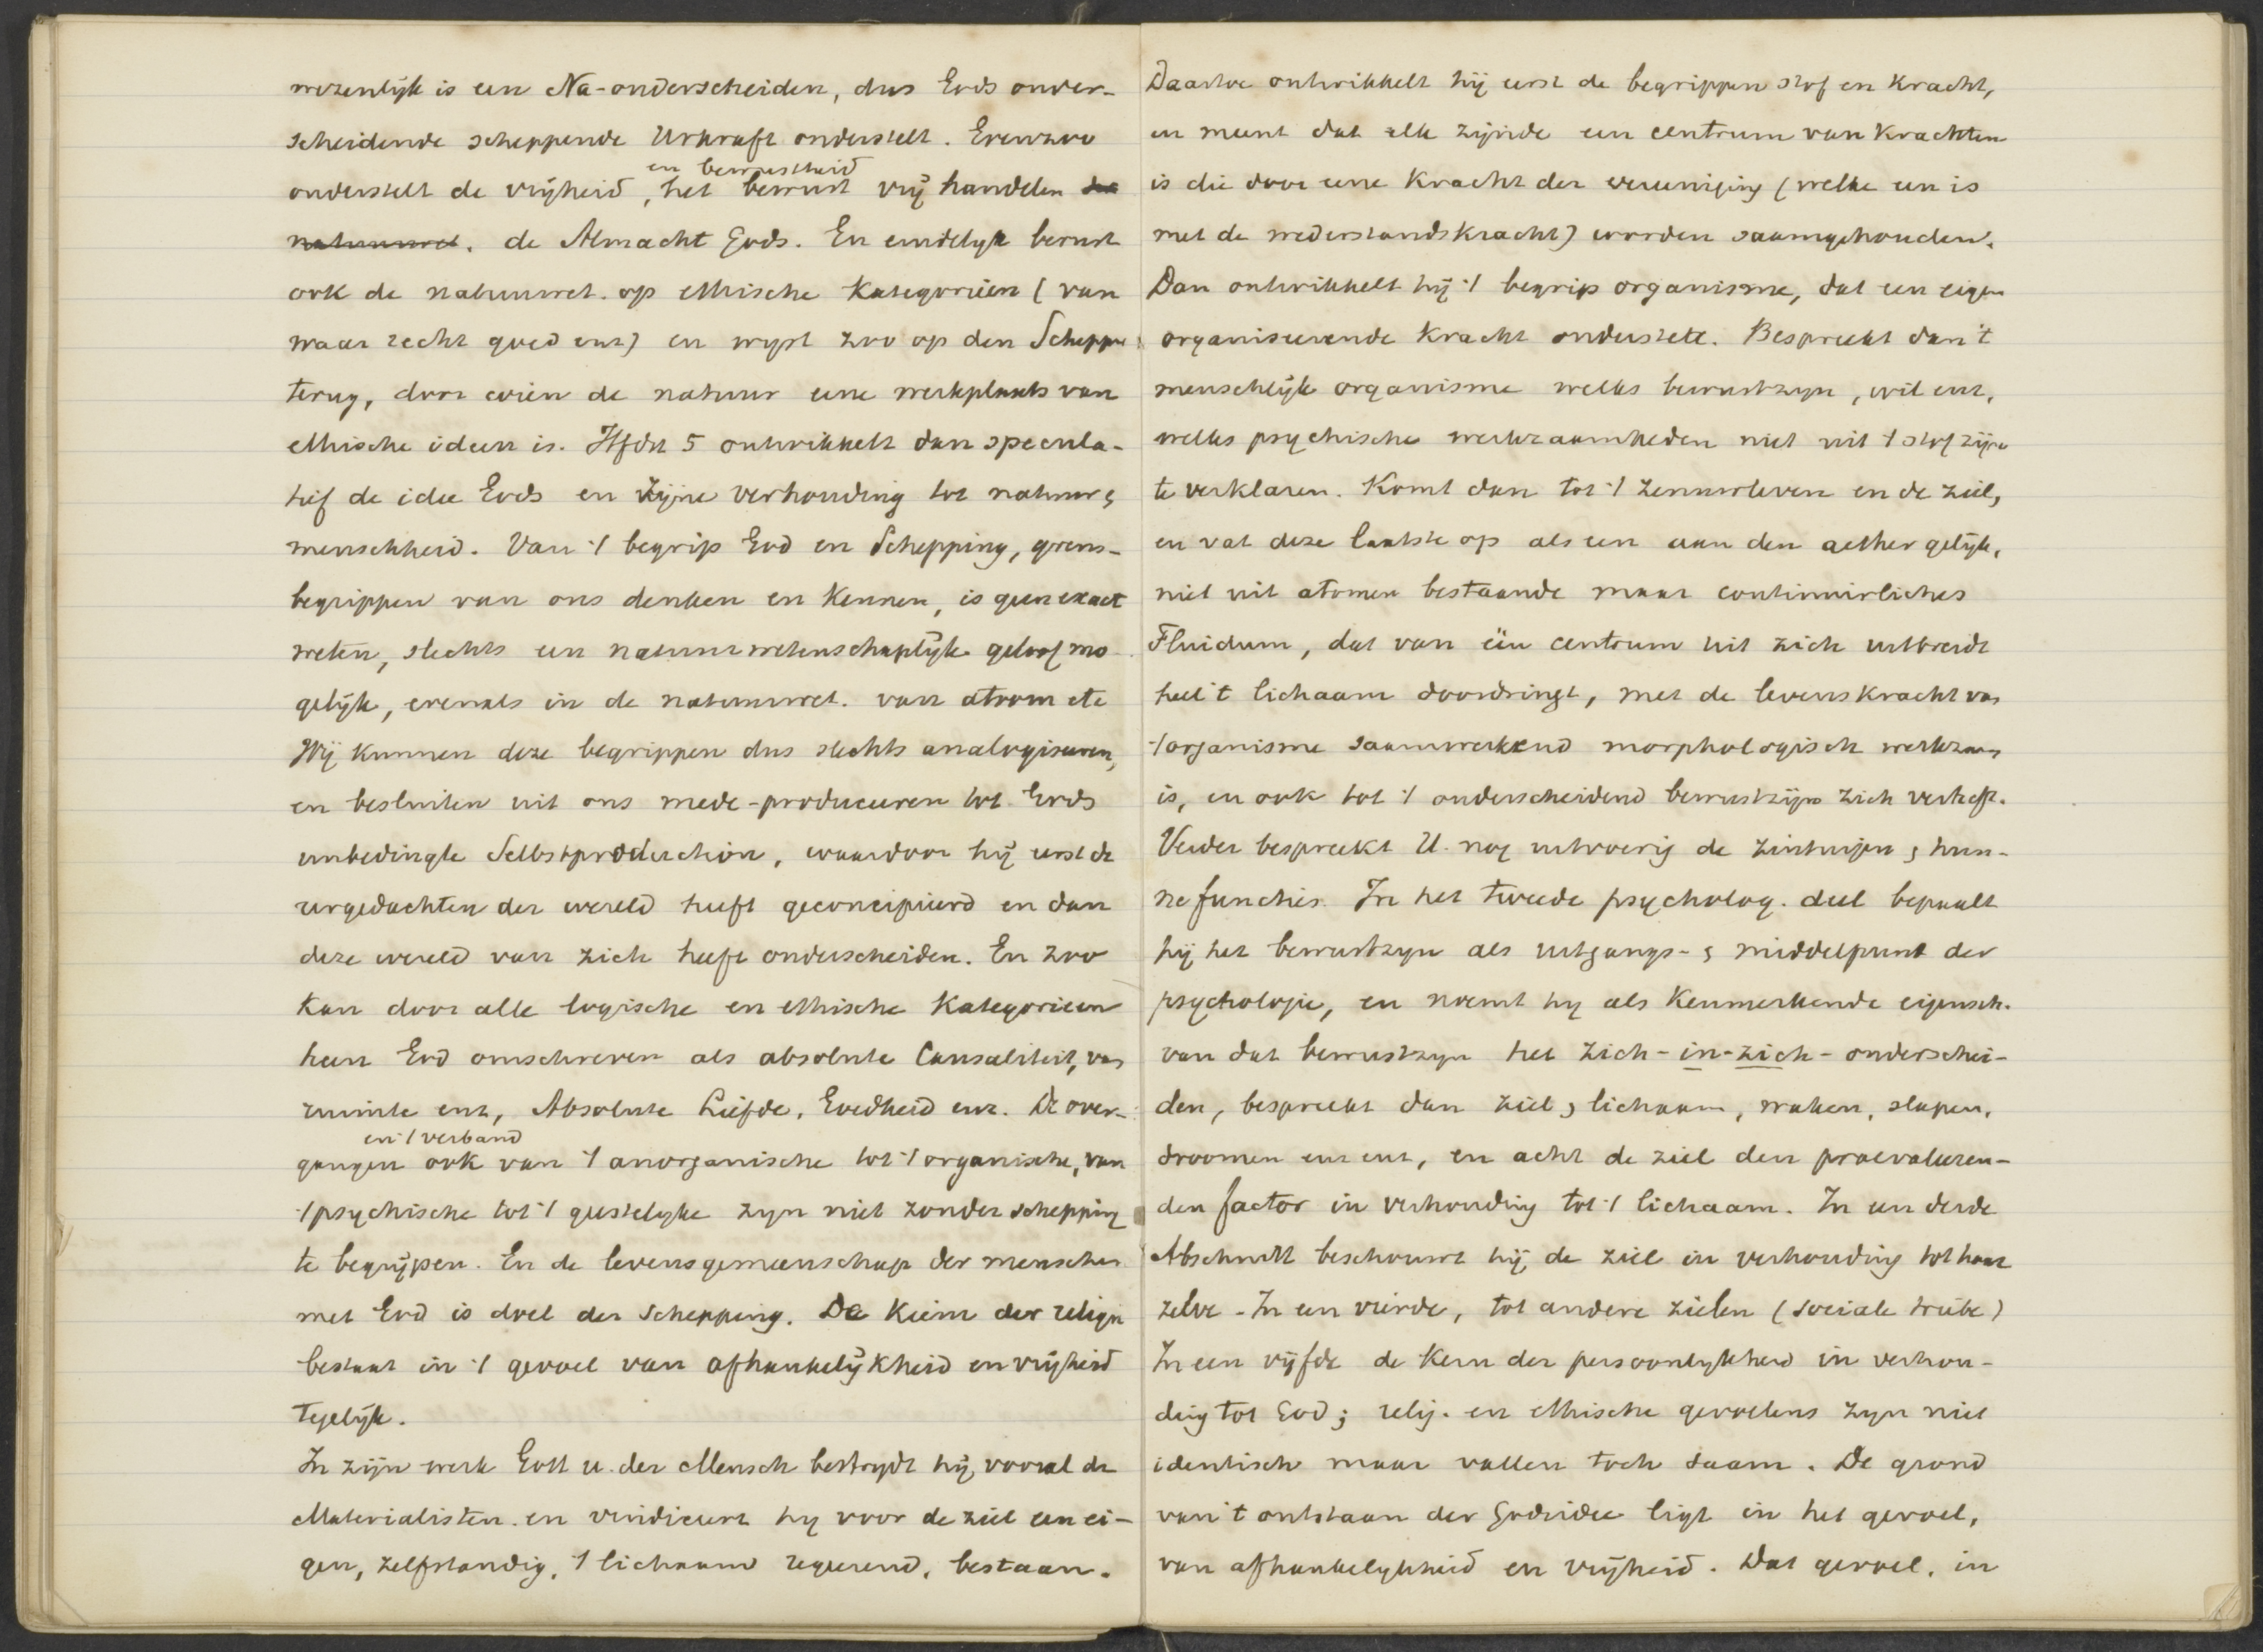 wezenlijk is een Na-onderscheiden, dus Gods onder-
scheidende scheppende Urkraft onderstelt. Evenzoo
en bewustheid
onderstelt de vrijheid, het bewust vrij handelen der
natuurwet. de Almacht Gods. En eindelyk berust
ook de natuurwet. op ethische Kategorieën (van
waar recht goed enz) en wyst zoo op den Schepper
terug, door wien de natuur eene werkplaats van
ethische ideen is. Hfdst 5 ontwikkelt dan specula-
tief de idee Gods en zijne verhouding tot natuur &
menschheid. Van 't begrip God en Schepping, grens-
begrippen van ons denken en Kennen, is geen exact
weten, slechts een natuurwetenschaplijk geloof mo-
gelijk, evenals in de natuurwet. van atoom etc
Wij kunnen deze begrippen dus slechts analogiseeren,
en besluiten uit ons mede-produceeren tot Gods
unbedingte Selbstproduction, waardoor hij eerst de
urgedachten der wereld heeft geconcipieerd en dan
deze wereld van zich heeft onderscheiden. En zoo
kan door alle logische en ethische Kategorieen
heen God omschreven als absolute Causaliteit, van
ruimte enz, Absolute Liefde, Goedheid enz. De over-
en 't verband
gangen ook van 't anorganische tot 't organische, van
't psychische tot 't geestelyke zyn niet zonder schepping
te begrijpen. En de levensgemeenschap der menschen
met God is doel der Schepping. De Kiem der religie
bestaat in 't gevoel van afhankelijkheid en vrijheid
tegelijk.
In zijn werk Gott u. der Mensch bestrydt hij vooral de
Materialisten en vindiceert hy voor de ziel een ei-
gen, zelfstandig, 't lichaam regeerend, bestaan.
Daartoe ontwikkelt hij eerst de begrippen stof en Kracht,
en meent dat elk zijnde een centrum van Krachten
is die door eene Kracht der vereeniging (welke een is
met de wederstandskracht) worden saamgehouden.
Dan ontwikkelt hij 't begrip organisme, dat een eigen
organiseerende Kracht onderstelt. Bespreekt dan 't
menschlijk organisme welks bewustzyn, wil enz,
welks psychische werkzaamheden niet uit 't stof zijn
te verklaren. Komt dan tot 't Zenuwleven en de ziel,
en vat deze laatste op als een aan den aether gelijk,
niet uit atomen bestaande maar continuirliches
Fluidum, dat van één centrum uit zich uitbreidt
heel 't lichaam doordringt, met de levenskracht van
't organisme saamwerkend morphologisch werkzaam
is, en ook tot 't onderscheidend bewustzijn zich verheft.
Verder bespreekt U. nog uitvoerig de zintuigen & hun-
ne functies. In het tweede psycholog. deel bepaalt
hij het bewustzyn als uitgangs- & middelpunt der
psychologie, en noemt hy als Kenmerkende eigensch.
van dat bewustzyn het zich-in-zich-onderschei-
den, bespreekt dan ziel & lichaam, waken, slapen,
droomen enz enz, en acht de ziel den praevaleeren-
den factor in verhouding tot 't lichaam. In een derde
Abschnitt beschouwt hij de ziel in verhouding tot haar
zelve. In een vierde, tot andere zielen (sociale triebe)
In een vijfde de Kern der persoonlykheid in verhou-
ding tot God; relig. en ethische gevoelens zyn niet
identisch maar vallen toch saam. De grond
van 't ontstaan der Godsidee ligt in het gevoel,
van afhankelykheid en vrijheid. Dat gevoel, in